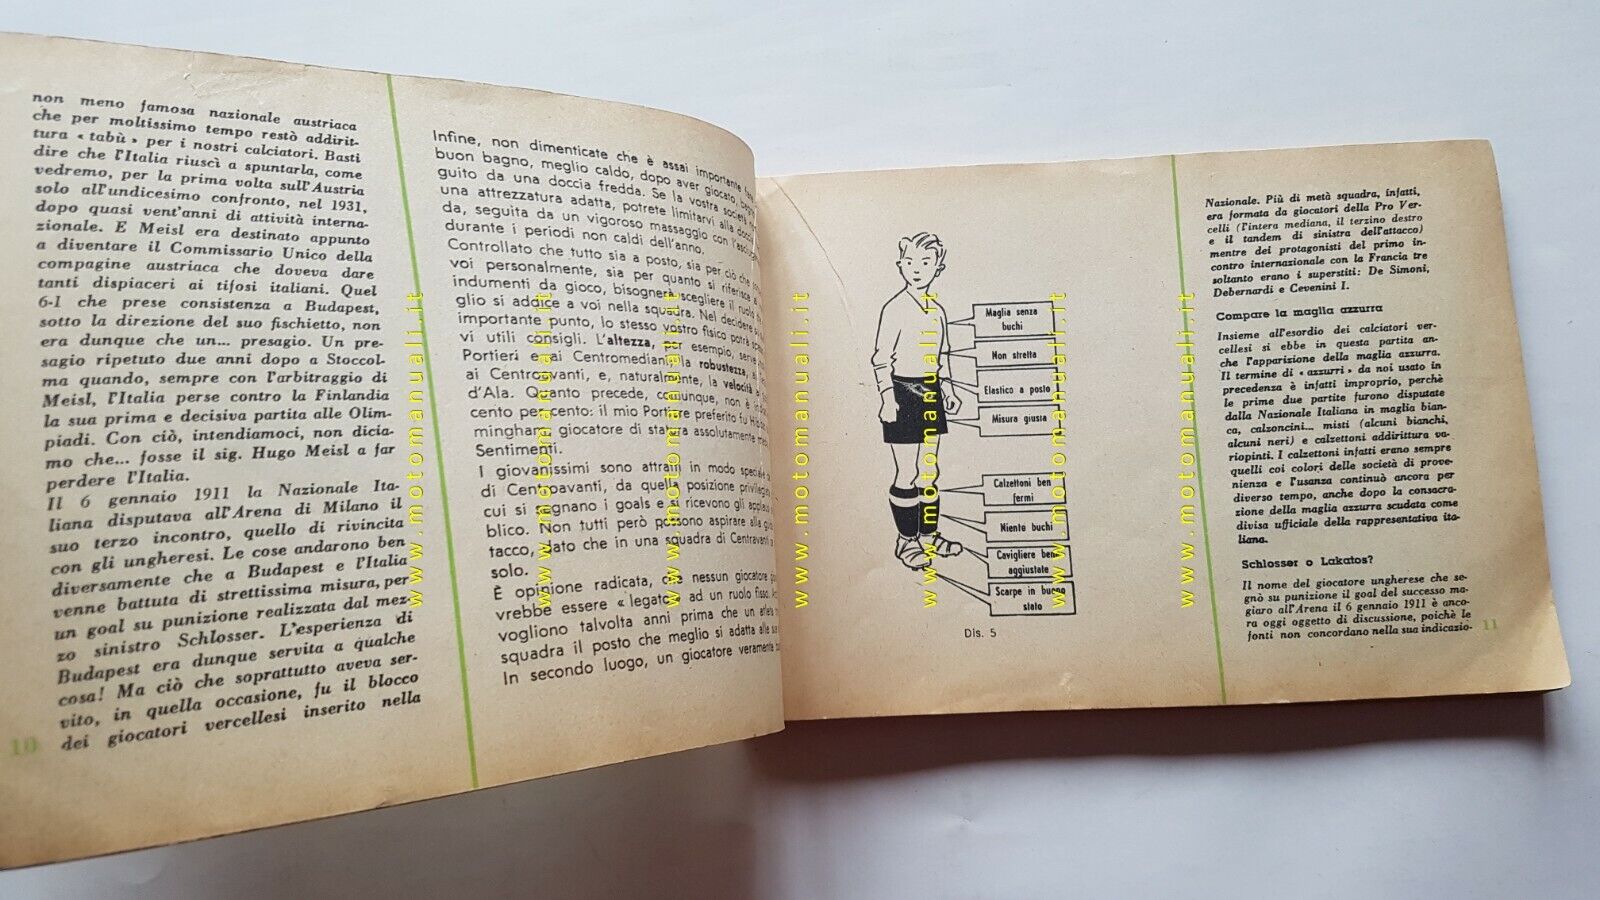 non meno famosa nazionale austriaca
che per moltissimo tempo restò addirit-
tura « tabù » per i nostri calciatori. Basti
dire che l'Italia riuscì a spuntarla, come
vedremo, per la prima volta sull'Austria
solo all'undicesimo confronto, nel 1931,
dopo quasi vent'anni di attività interna-
zionale. E Meisl era destinato appunto
a diventare il Commissario Unico della
compagine austriaca che doveva dare
tanti dispiaceri ai tifosi italiani. Quel
6-1 che prese consistenza a Budapest,
sotto la direzione del suo fischietto, non
era dunque che un... presagio. Un pre-
sagio ripetuto due anni dopo a Stoccol-
ma quando, sempre con l'arbitraggio di
Meisl, l'Italia perse contro la Finlandia
la sua prima e decisiva partita alle Olim-
piadi. Con ciò, intendiamoci, non dicia-
mo che... fosse il sig. Hugo Meisl a far
perdere l'Italia.
Il 6 gennaio 1911 la Nazionale Ita-
liana disputava all'Arena di Milano il
suo terzo incontro, quello di rivincita
con gli ungheresi. Le cose andarono ben
diversamente che a Budapest e l'Italia
venne battuta di strettissima misura, per
un goal su punizione realizzata dal mez-
zo sinistro Schlosser. L'esperienza di
Budapest era dunque servita a qualche
cosa! Ma ciò che soprattutto aveva ser-
vito, in quella occasione, fu il blocco
dei giocatori vercellesi inserito nella
10
Infine, non dimenticate che è assai importante
buon bagno, meglio caldo, dopo aver giocato,
guito da una doccia fredda. Se la vostra società
una attrezzatura adatta, potrete limitarvi alla
da, seguita da un vigoroso massaggio con
durante i periodi non caldi dell'anno.
Controllato che tutto sia a posto, sia per ciò che
voi personalmente, sia per quanto si riferisce
indumenti da gioco, bisognerà scegliere il ruolo
glio si addice a voi nella squadra. Nel decidere
importante punto, lo stesso vostro fisico potrà
vi utili consigli. L'altezza, per esempio, serve
Portieri e ai Centromediani, la robustezza,
ai Centroavanti, e, naturalmente, la velocità
d'Ala. Quanto precede, comunque, non è
cento per cento: il mio Portiere preferito fu
mingham, giocatore di statura assolutamente
Sentimenti.
I giovanissimi sono attratti in modo speciale
di Centravanti, da quella posizione
cui si segnano i goals e si ricevono gli
blico. Non tutti però possono aspirare alla
tacco, dato che in una squadra di Centravanti
solo.
È opinione radicata, che nessun giocatore
vrebbe essere « legato » ad un ruolo fisso.
vogliono talvolta anni prima che un
squadra il posto che meglio si adatta alle
In secondo luogo, un giocatore veramente
Maglia senza
buchi
Non stretta
Elastico a posto
Misura giusta
Calzettoni ben
fermi
Niente buchi
Cavigliere bene
aggiustate
Scarpe in buono
stato
Dis. 5
Nazionale. Più di metà squadra, infatti,
era formata da giocatori della Pro Ver-
celli (l'intera mediana, il terzino destro
e il tandem di sinistra dell'attacco)
mentre dei protagonisti del primo in-
contro internazionale con la Francia tre
soltanto erano i superstiti: De Simoni,
Debernardi e Cevenini I.
Compare la maglia azzurra
Insieme all'esordio dei calciatori ver-
cellesi si ebbe in questa partita an-
che l'apparizione della maglia azzurra.
Il termine di « azzurri » da noi usato in
precedenza è infatti improprio, perchè
le prime due partite furono disputate
dalla Nazionale Italiana in maglia bian-
ca, calzoncini... misti (alcuni bianchi,
alcuni neri) e calzettoni addirittura va-
riopinti. I calzettoni infatti erano sempre
quelli coi colori delle società di prove-
nienza e l'usanza continuò ancora per
diverso tempo, anche dopo la consacra-
zione della maglia azzurra scudata come
divisa ufficiale della rappresentativa ita-
liana.
Schlosser o Lakatos?
Il nome del giocatore ungherese che se-
gnò su punizione il goal del successo ma-
giaro all'Arena il 6 gennaio 1911 è anco-
ra oggi oggetto di discussione, poichè le
fonti non concordano nella sua indicazio-
11
www.motomanuali.it
www.motomanuali.it
www.motomanuali.it
www.motomanuali.it
www.motomanuali.it
www.motomanuali.it
www.motomanuali.it